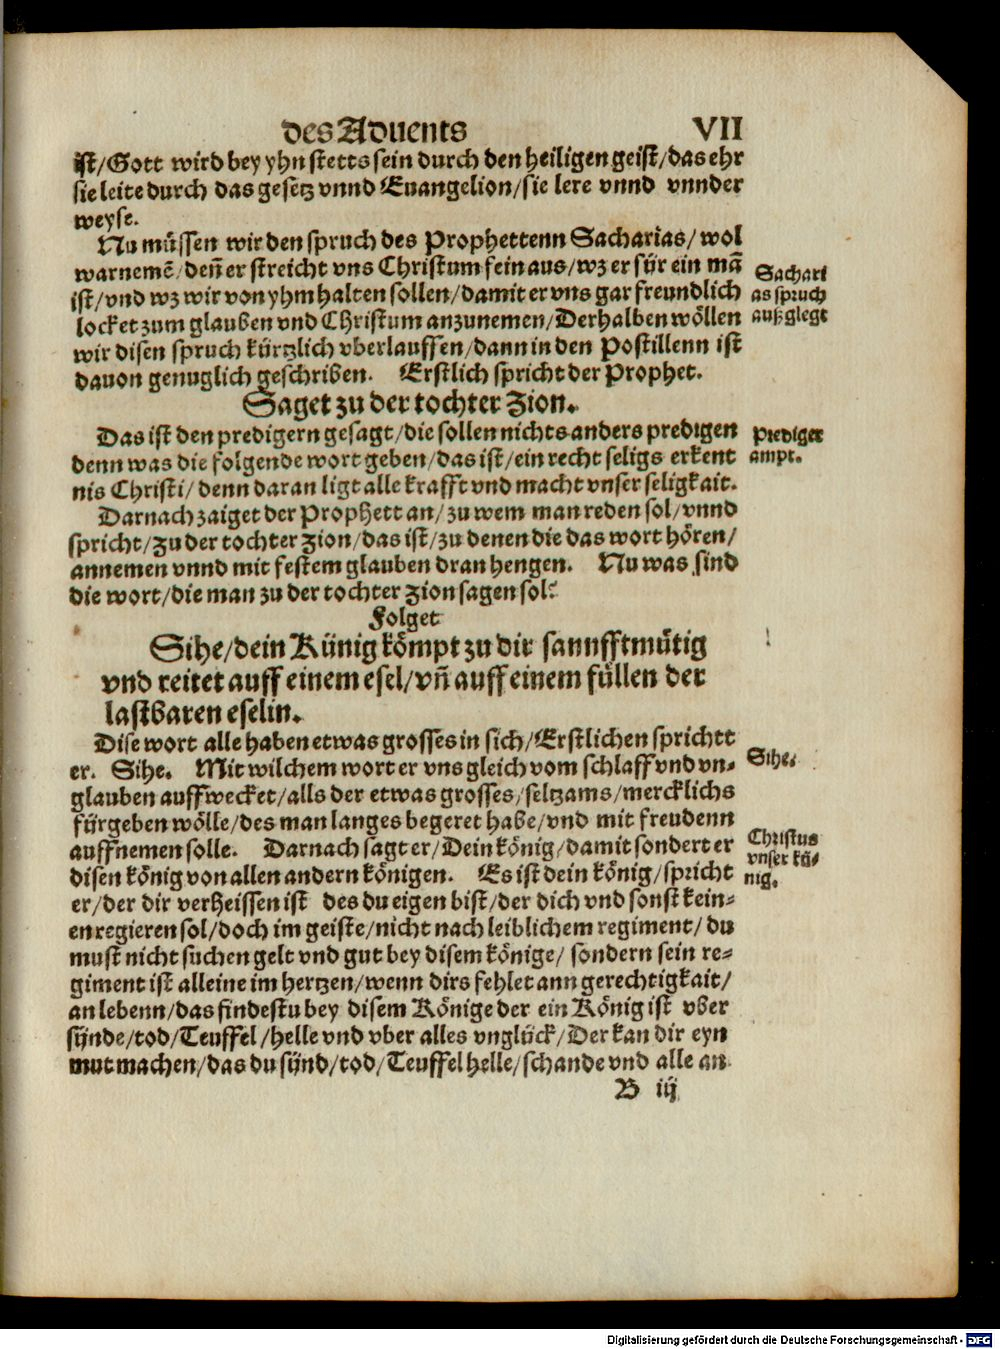 des Aduents VII
ist/Gott wird bey yhn stetts sein durch den heiligen geist/das ehr
sie leite durch das gesetz vnnd Euangelion/sie lere vnnd vnnder
weyse.
Nu müssen wir den spruch des Prophettenn Sacharias/ wol
warnemẽ/deñ er streicht vns Christum fein aus/wz er für ein mã
ist/vnd wz wir von yhm halten sollen/damit er vns gar freundlich
locket zum glauben vnd Christum anzunemen/Derhalben wöllen
wir disen spruch kürtzlich vberlauffen/dann in den Postillenn ist
dauon genuglich geschriben. Erstlich spricht der Prophet.
Sachari
as spruch
außglegt
Saget zu der tochter Zion.
Das ist den predigern gesagt/die sollen nichts anders predigen
denn was die folgende wort geben/das ist/ein recht seligs erkent
nis Christi/denn daran ligt alle krafft vnd macht vnser seligkait.
Prediger
ampt.
Darnach zaiget der Prophett an/zu wem man reden sol/vnnd
spricht/Zu der tochter Zion/das ist/zu denen die das wort hören/
annemen vnnd mit festem glauben dran hengen. Nu was sind
die wort/die man zu der tochter Zion sagen sol?
Folget
Sihe/dein Künig kömpt zu dir sannfftmütig
vnd reitet auff einem esel/vñ auff einem füllen der
lastbaren eselin.
Dise wort alle haben etwas grosses in sich/Erstlichen sprichtt
er. Sihe. Mit wilchem wort er vns gleich vom schlaff vnd vn-
glauben auffwecket/alls der etwas grosses/seltzams/mercklichs
fürgeben wölle/des man langes begeret habe/vnd mit freudenn
auffnemen solle. Darnach sagt er/Dein könig/damit sondert er
disen könig von allen andern königen. Es ist dein könig/spricht
er/der dir verheissen ist des du eigen bist/der dich vnd sonst kein-
en regieren sol/doch im geiste/nicht nach leiblichem regiment/du
must nicht suchen gelt vnd gut bey disem könige/ sondern sein re-
giment ist alleine im hertzen/wenn dirs fehlet ann gerechtigkait/
an lebenn/das findestu bey disem Könige der ein König ist vber
sünde/tod/Teuffel/helle vnd vber alles vnglück/Der kan dir eyn
mut machen/das du sünd/tod/Teuffel helle/schande vnd alle an
Sihe.
Christus
vnser kü-
nig.
B iij
Digitalisierung gefördert durch die Deutsche Forschungsgemeinschaft - DFG